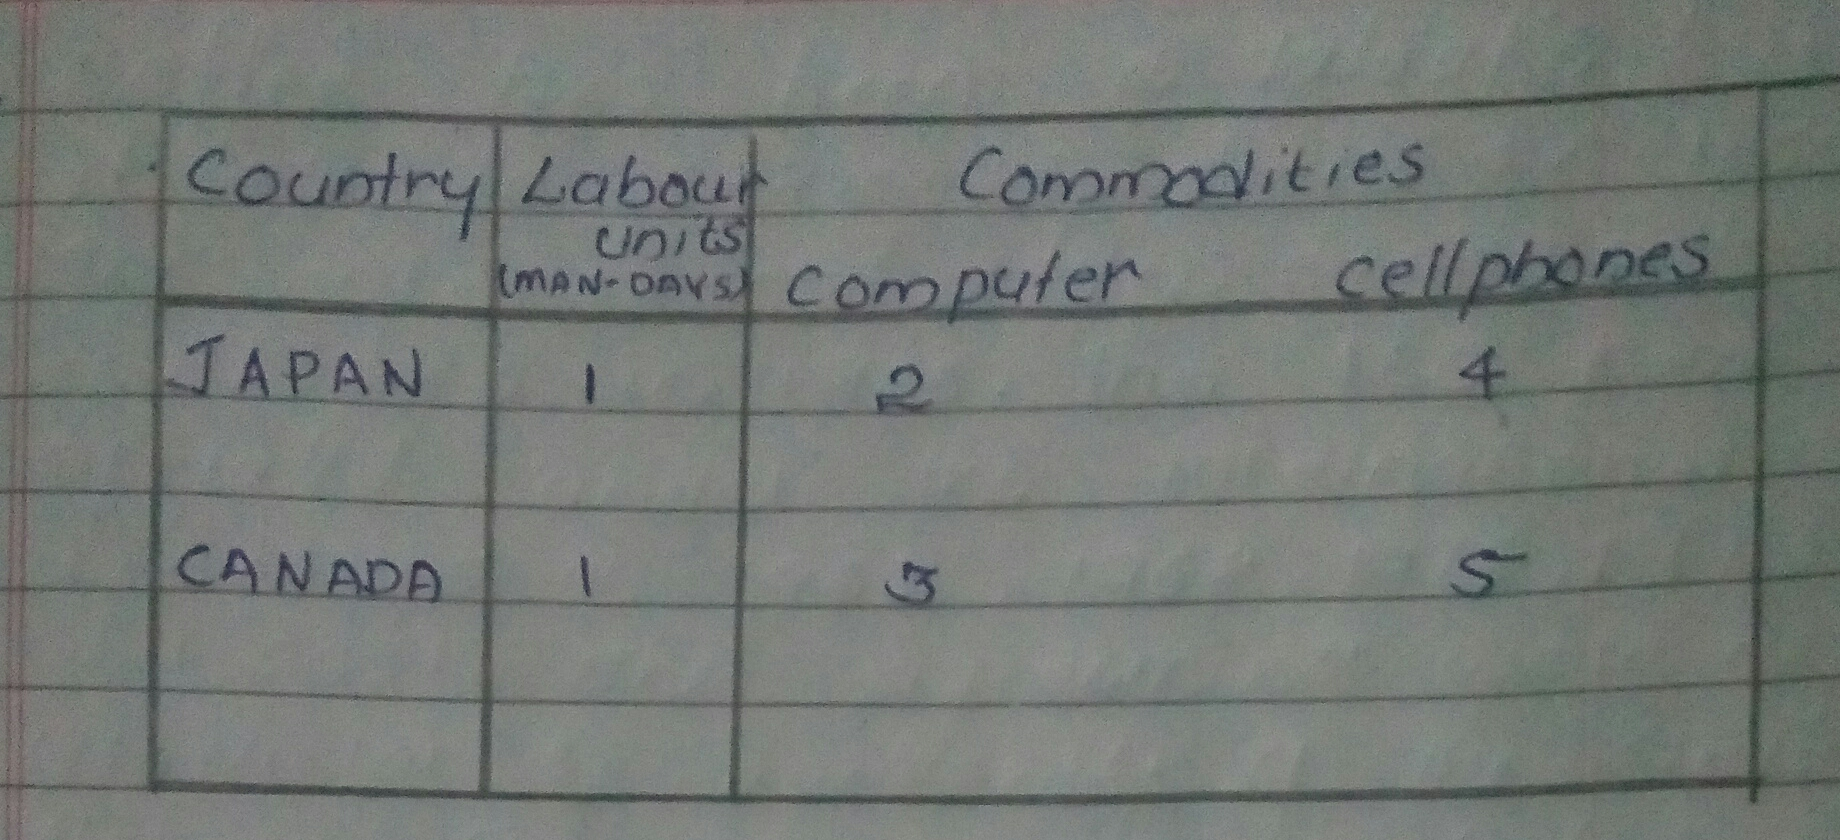 Country Labour Commodities
units
(MAN-DAYS) Computer cellphones
JAPAN 1 2 4
CANADA 1 3 5